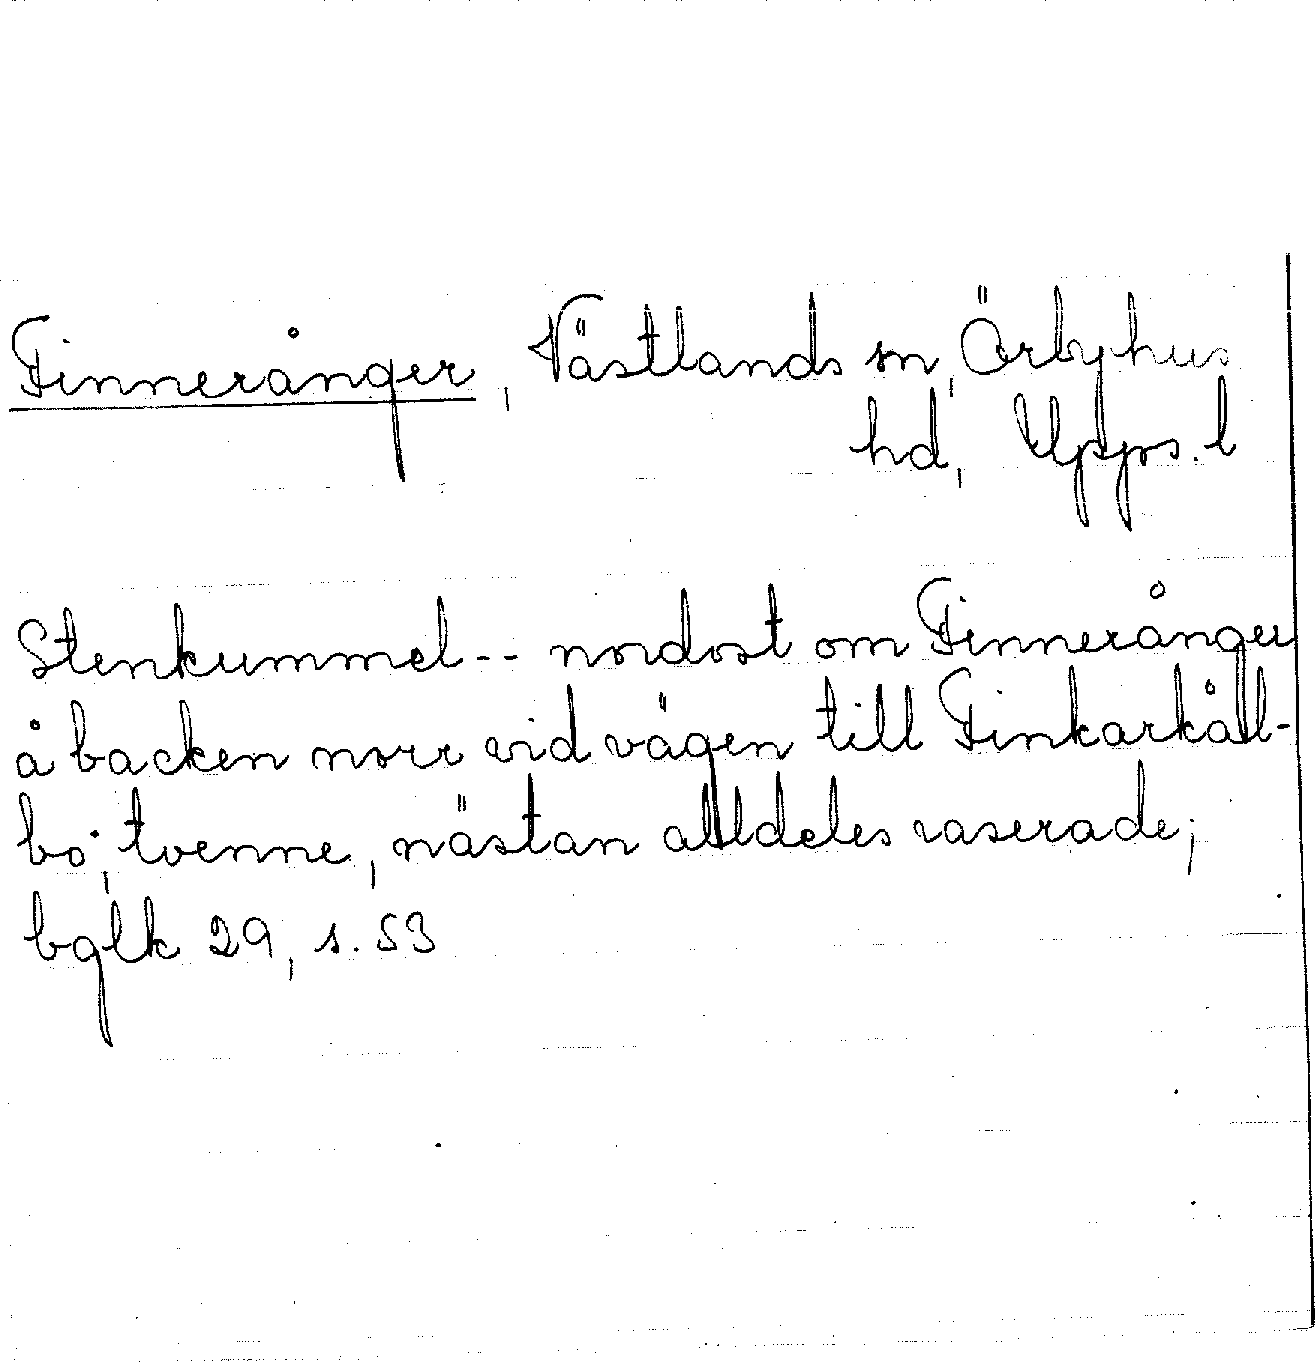 Finnerånger, Västlands sn, Örbyhus
hd, Upps. l
Stenkummel -- nordost om Finnerånger
å backen norr vid vägen till Finkarkåll-
bo, tvenne, nästan alldeles raserade;
bglk 29, s. 53